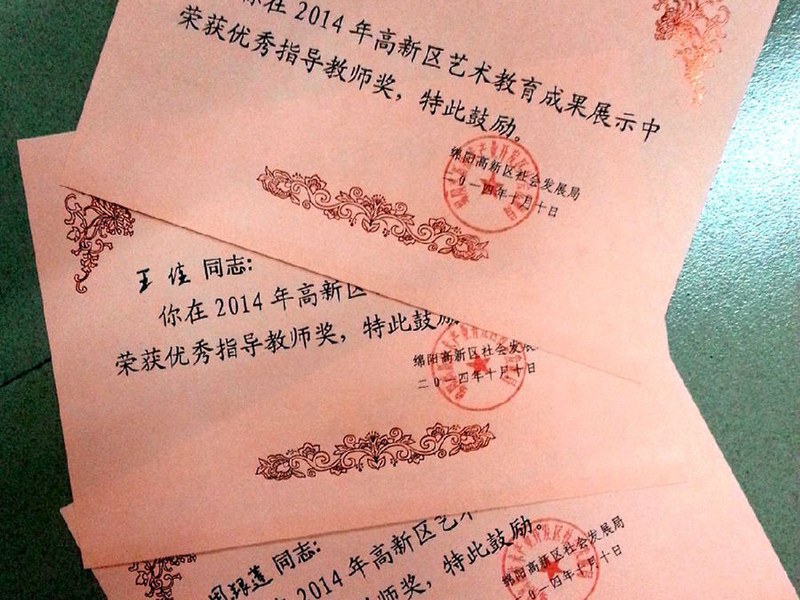 你在2014年高新区艺术教育成果展示中
荣获优秀指导教师奖，特此鼓励。
绵阳高新区社会发展局
二0一四年十月十日
王佳 同志：
你在2014年高新区
荣获优秀指导教师奖，特此鼓励
绵阳高新区社会发展
二0一四年十月十日
同志：
在2014年高新区艺术
教师奖，特此鼓励。
绵阳高新区社会发展局
二0一四年十月十日